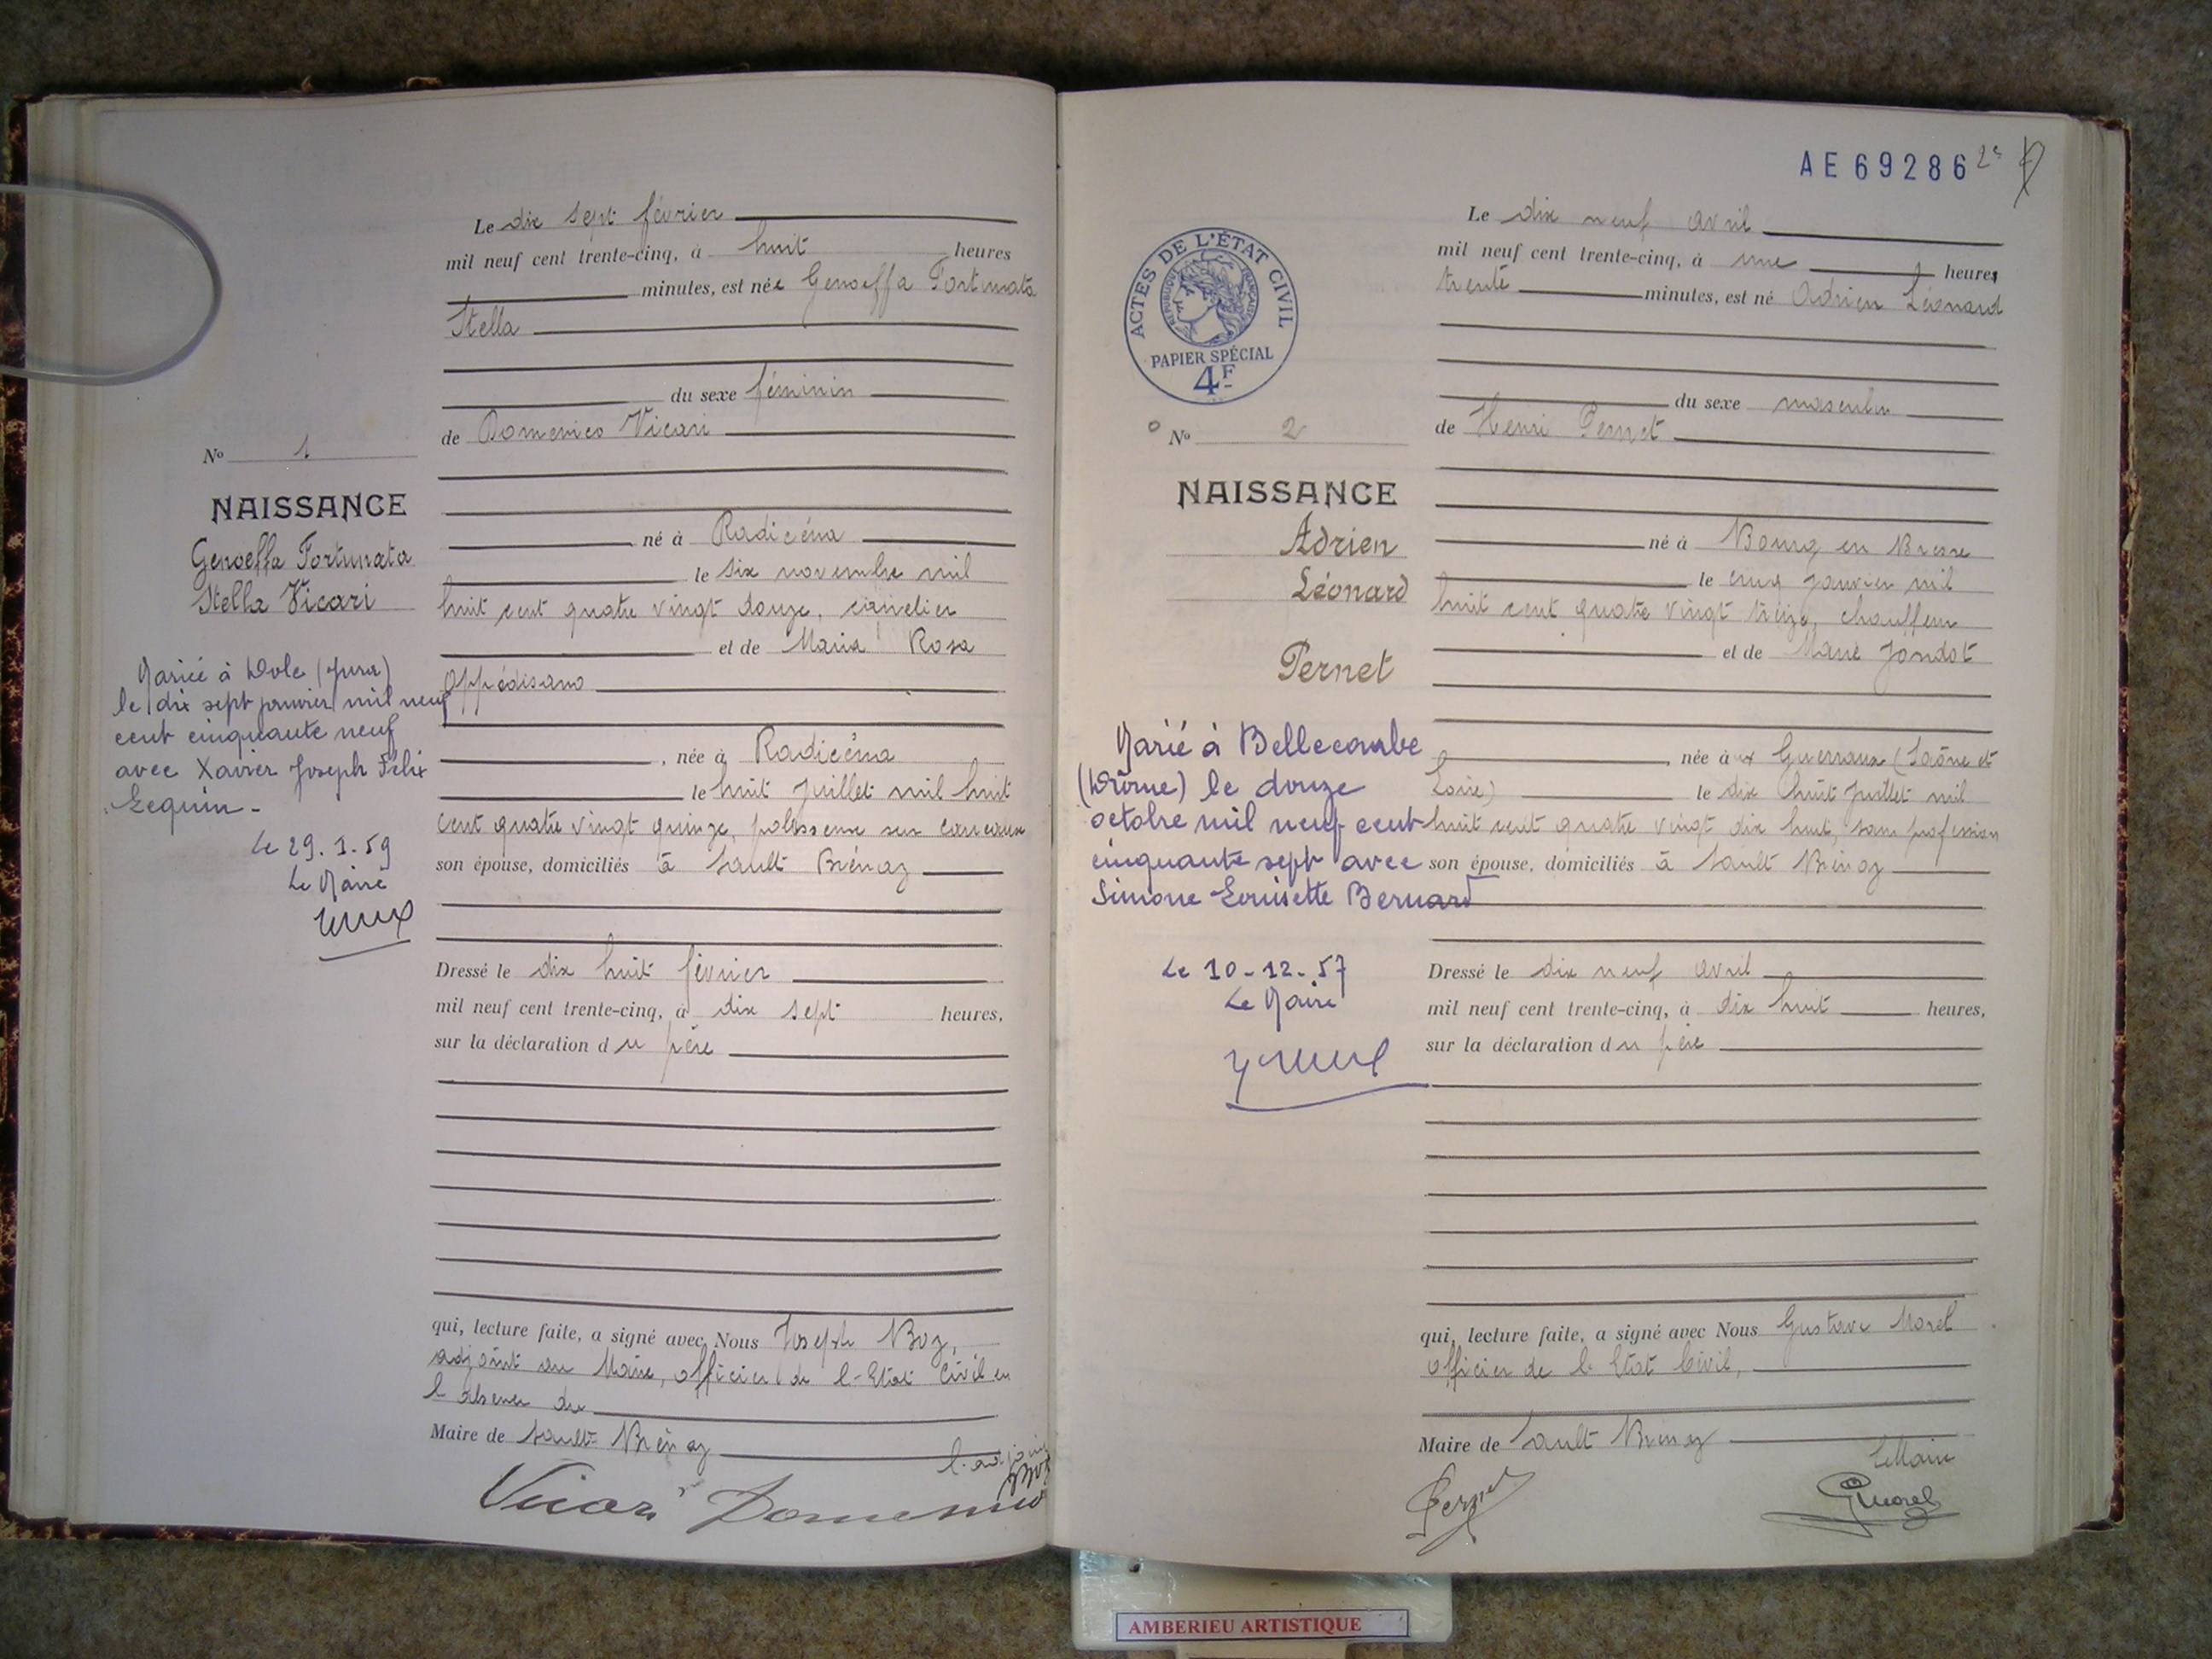 Le dix sept février
mil neuf cent trente-cinq, à huit heures
minutes, est née Genoeffa Fortunata
Stella
du sexe féminin
de Domenico Vicari
né à Radicéna
le six novembre mil
huit cent quatre vingt douze,
et de Maria Rosa
Oppédisano
, née à Radicéna
le huit Juillet mil huit
cent quatre vingt quinze, polisseuse sur
son épouse, domiciliés à Sault Brénaz
Dressé le dix huit février
mil neuf cent trente-cinq, à dix sept heures,
sur la déclaration du père
qui, lecture faite, a signé avec Nous Joseph Boz,
adjoint au Maire, officier de l'Etat Civil en
l'absence du
Maire de Sault-Brénaz
l'adjoint
Boz
Vicari Domenico
No 1
NAISSANCE
Genoeffa Fortunata
Stella Vicari
Mariée à Dole (Jura)
le dix sept janvier mil neuf
cent cinquante neuf
avec Xavier Joseph Félix
Lequin-
Le 29.1.59
Le Maire
AE69286
ACTES DE L'ÉTAT CIVIL
RÉPUBLIQUE FRANÇAISE
PAPIER SPÉCIAL
4F
No 2
NAISSANCE
Adrien
Léonard
Pernet
Marié à Bellecombe
(Drôme) le douze
octobre mil neuf cent
cinquante sept avec
Simone Louisette Bernard
Le 10-12-57
Le Maire
Le dix neuf avril
mil neuf cent trente-cinq, à une heures
trente minutes, est né Adrien Léonard
du sexe masculin
de Henri Pernet
né à Bourg en Bresse
le cinq Janvier mil
huit cent quatre vingt treize, chauffeur
et de Marie Jondot
, née aux Guerreaux (Saône et
Loire) le dix huit Juillet mil
huit cent quatre vingt dix huit, sans profession
son épouse, domiciliés à Sault Brénaz
Dressé le dix neuf avril
mil neuf cent trente-cinq, à dix huit heures,
sur la déclaration du père
qui, lecture faite, a signé avec Nous Gustave Morel
officier de l'Etat Civil,
Maire de Sault Brénaz
Le Maire
Pernet
GMorel
AMBERIEU ARTISTIQUE